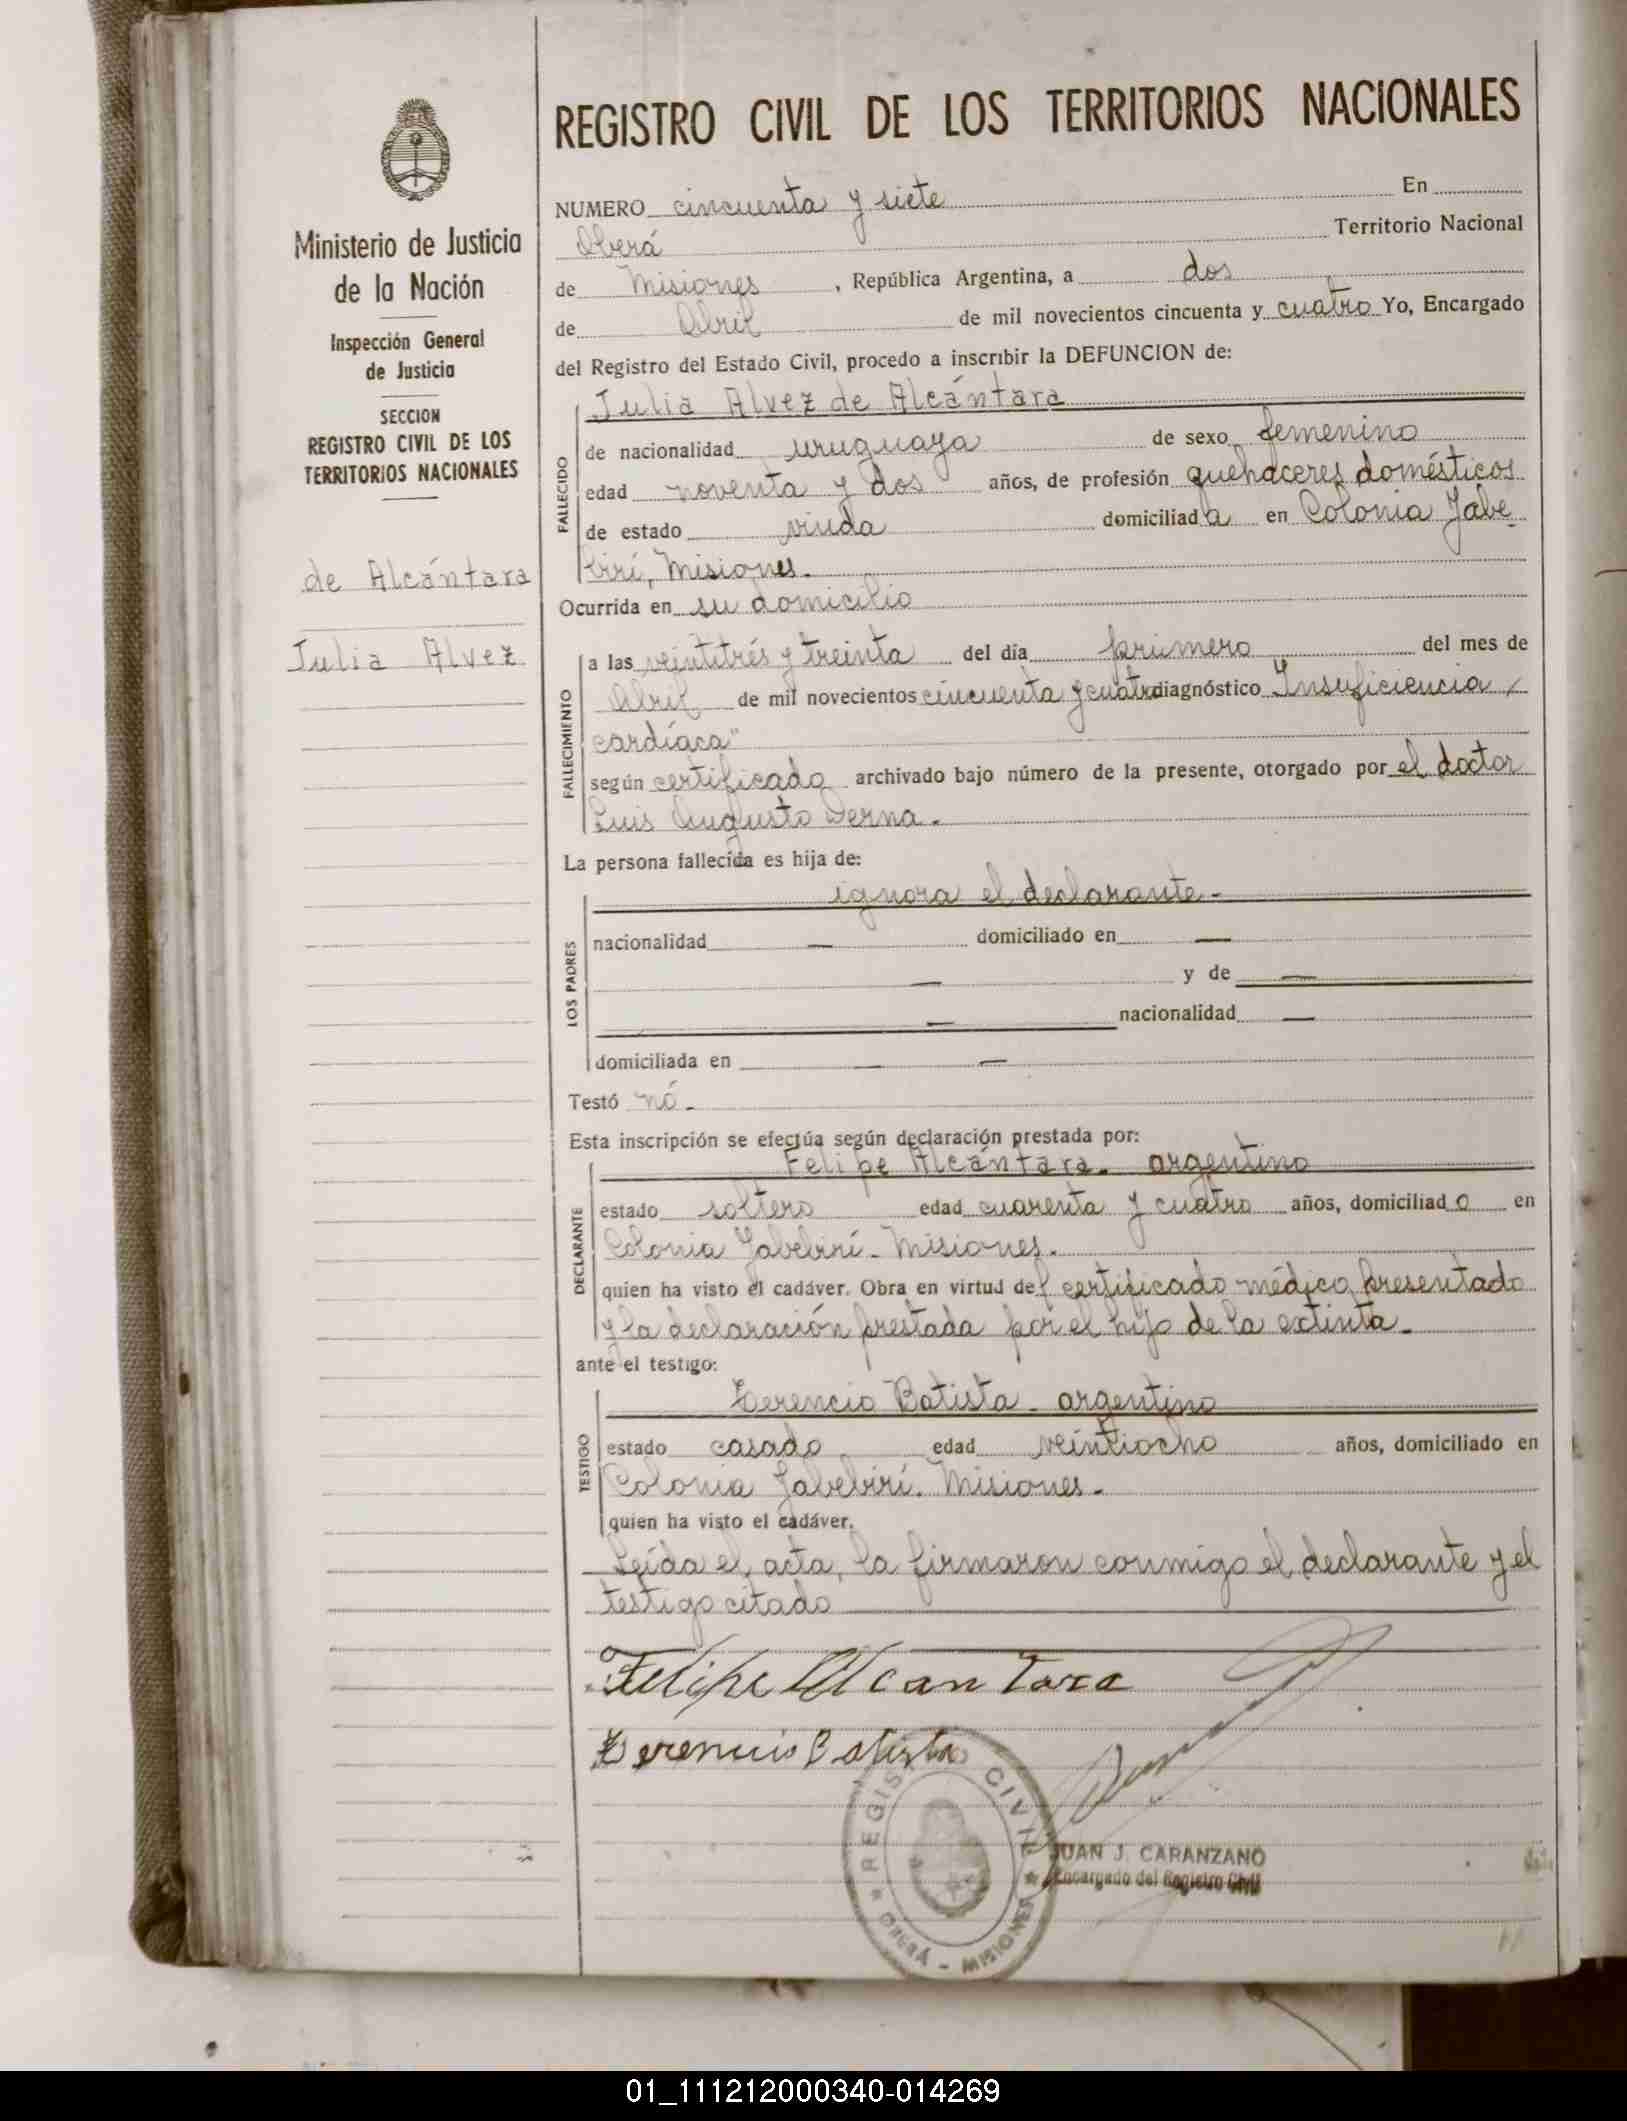 REGISTRO CIVIL DE LOS TERRITORIOS NACIONALES
Ministerio de Justicia
de la Nación
Inspección General
de Justicia
SECCION
REGISTRO CIVIL DE LOS
TERRITORIOS NACIONALES
de Alcántara
Julia Alvez
NUMERO cincuenta y siete En
Oberá Territorio Nacional
de Misiones, República Argentina, a dos
de Abril de mil novecientos cincuenta y cuatro Yo, Encargado
del Registro del Estado Civil, procedo a inscribir la DEFUNCION de:
FALLECIDO
Julia Alvez de Alcántara
de nacionalidad uruguaya de sexo femenino
edad noventa y dos años, de profesión quehaceres domésticos
de estado viuda domiciliada en Colonia Yabe
birí, Misiones.
Ocurrida en su domicilio
FALLECIMIENTO
a las veintitrés y treinta del día primero del mes de
Abril de mil novecientos cincuenta y cuatro diagnóstico "Insuficiencia
cardíaca"
según certificado archivado bajo número de la presente, otorgado por el doctor
Luis Augusto Derna.
La persona fallecida es hija de:
LOS PADRES
ignora el declarante-
nacionalidad — domiciliado en —
— y de —
— nacionalidad —
domiciliada en — —
Testó nó.
Esta inscripción se efectúa según declaración prestada por:
DECLARANTE
Felipe Alcántara. argentino
estado soltero edad cuarenta y cuatro años, domiciliado en
Colonia Yabebirí - Misiones.
quien ha visto el cadáver. Obra en virtud del certificado médico presentado
y la declaración prestada por el hijo de la extinta.
ante el testigo:
TESTIGO
Terencio Batista - argentino
estado casado edad veintiocho años, domiciliado en
Colonia Yabebirí. Misiones.
quien ha visto el cadáver.
Leída el acta, la firmaron conmigo el declarante y el
testigo citado
Felipe Alcantara
Terencio Batista
REGISTRO CIVIL
OBERÁ - MISIONES
JUAN J. CARANZANO
Encargado del Registro Civil
01_111212000340-014269